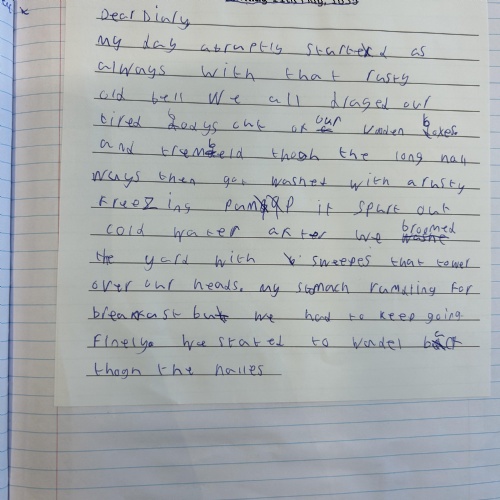 Dear Dialy
my day abruptly started as
always with that rusty
old bell We all draged our
tired bodys out of our wooden boxes
and trembeld thogh the long hall
ways then got washed with a rusty
freezing pump it spurt out
cold water after we broomed
the yard with sweepes that tower
over our heads. my stomach rumbling for
breakfast but we had to keep going
Finely we started to wonder back
thogh the halles